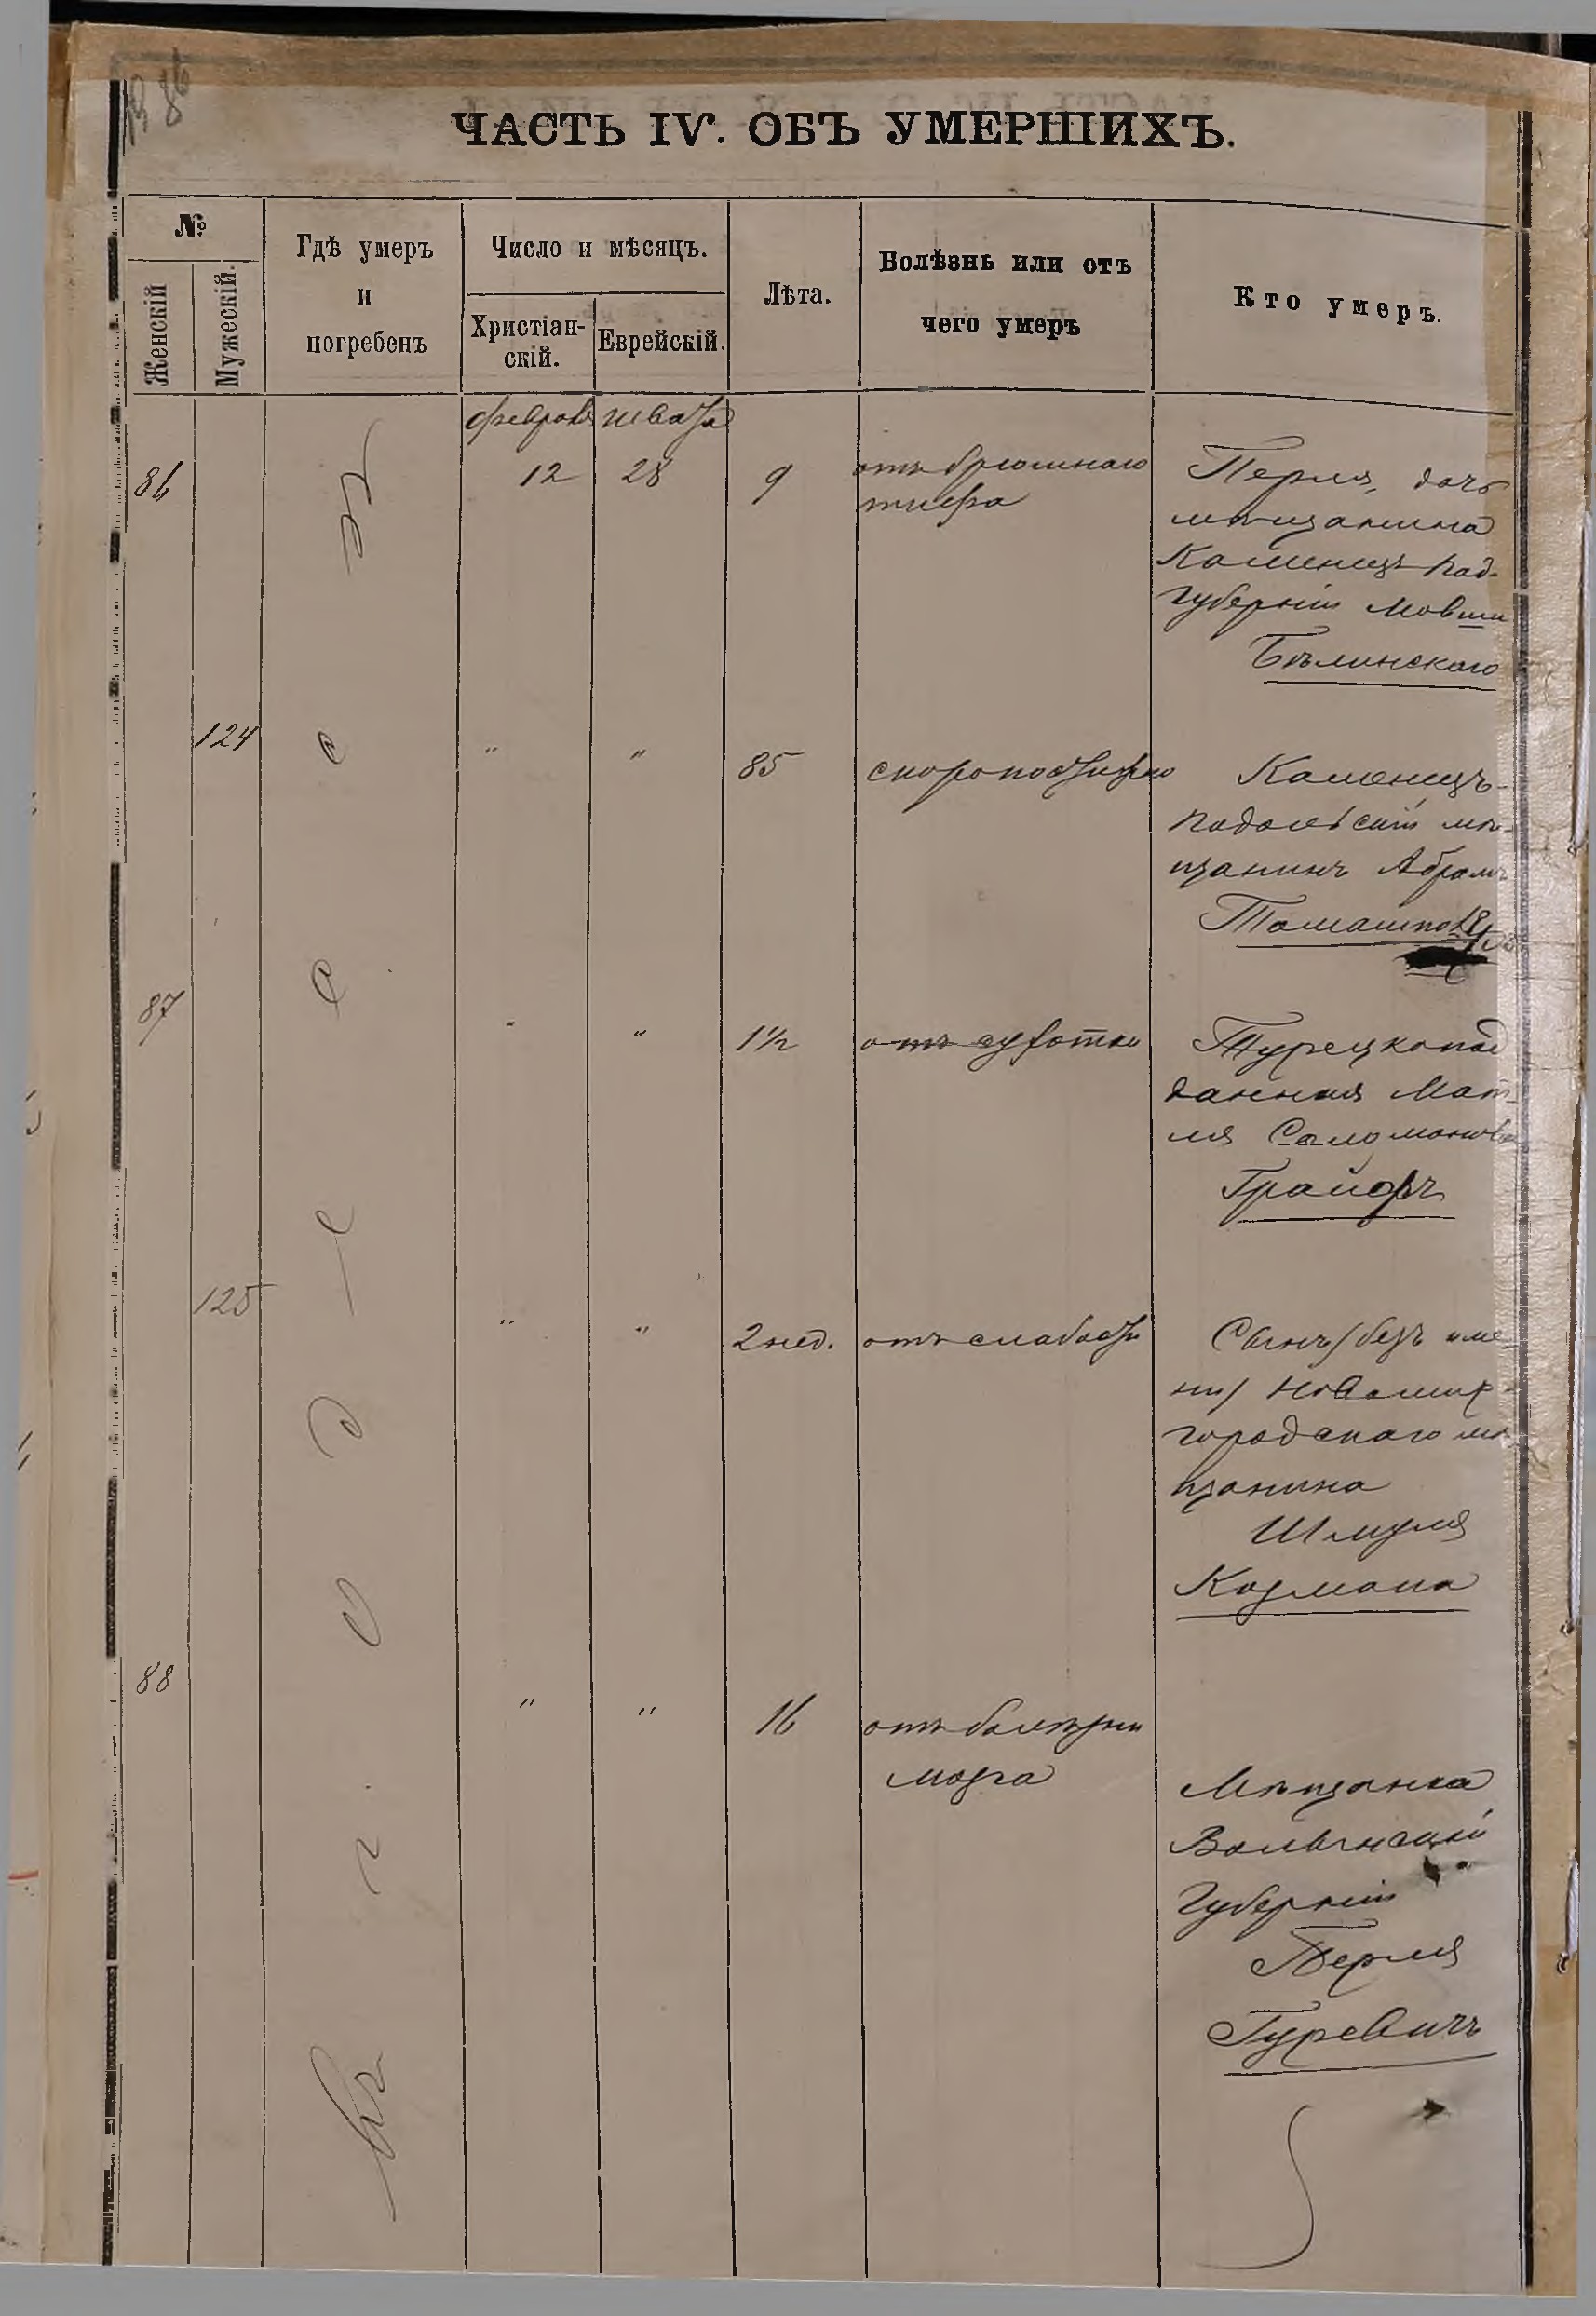 86
ЧАСТЬ IV. ОБЪ УМЕРШИХЪ.
№
Женскій
Мужескій.
Гдѣ умеръ
и
погребенъ
Число и мѣсяцъ.
Христіан-
скій.
Еврейскій.
Лѣта.
Болѣзнь или отъ
чего умеръ
Кто умеръ.
февраля швата
86 12 28 9 отъ брюшнаго
тифа
Перля, дочь
мѣщанина
Каменецъ-Под.
губерніи Мовши
Бѣлинскаго
124 " " 85 скоропостижно
Каменецъ-
Подольскій мѣ-
щанинъ Абрамъ
87 " " 1½ отъ сухотки
Турецкопод
данная Мат-
ля Соломонова
Грайфъ
125 " " 2 нед. отъ слабости
Сынъ /безъ име-
ни/ Новомир-
городскаго мѣ-
щанина
Шмуля
Козмана
88 " " 16 отъ болѣзни
мозга
Мѣщанка
Волынской
губерніи
Перля
Гуревичъ
Въ г. Одессѣ